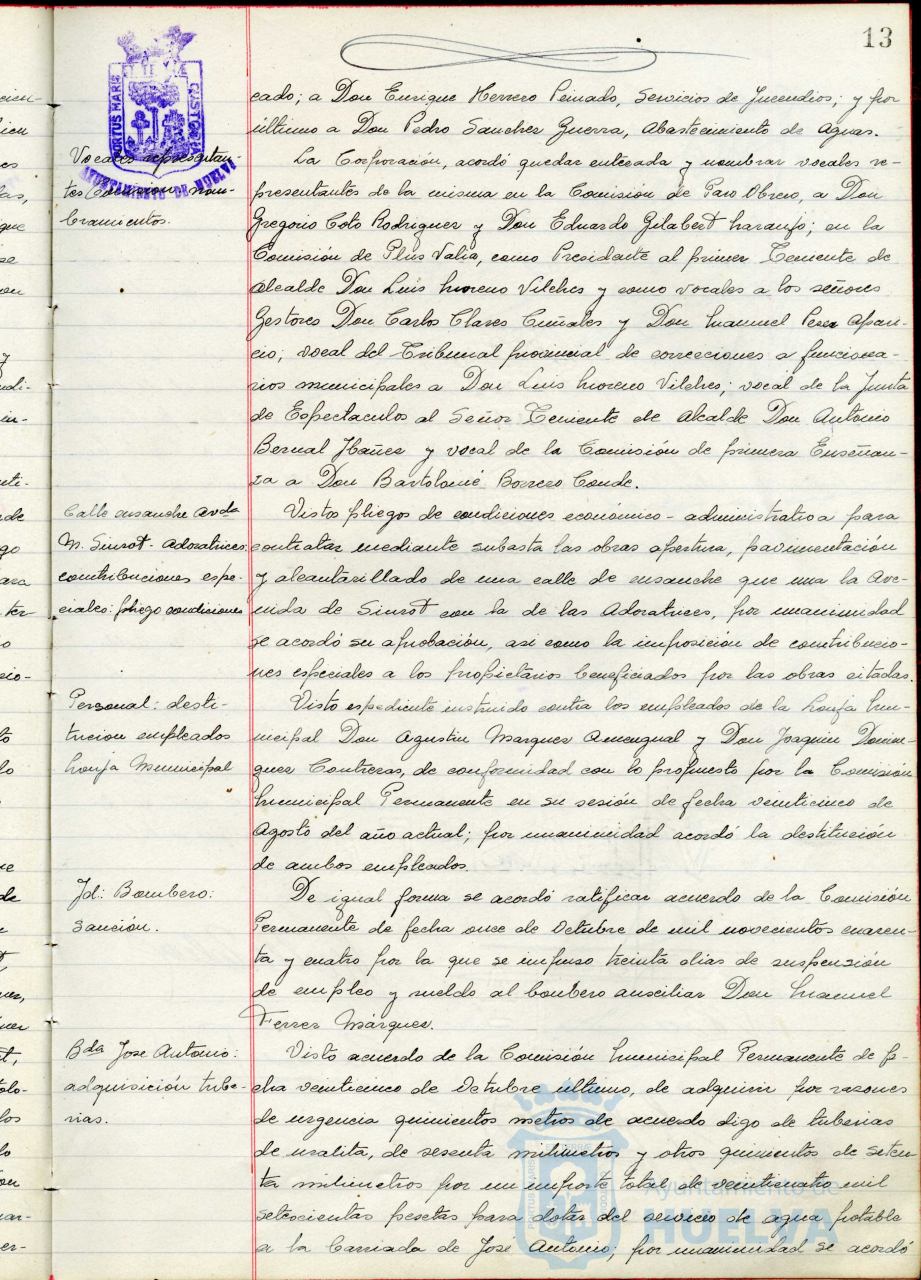 13
PORTUS MARIS ET TERRE CUSTODIA
AYUNTAMIENTO DE HUELVA
cado; a Don Enrique Herrero Peinado, Servicios de Incendios; y por
último a Don Pedro Sanchez Guerra, Abastecimiento de Aguas.
Vocales representan-
tes Comision, nom-
bramientos.
La Corporación, acordó quedar enterada y nombrar vocales re-
presentantes de la misma en la Comisión de Paro Obrero, a Don
Gregorio Coto Rodriguez y Don Eduardo Gilabert Naranjo; en la
Comisión de Plus Valia, como Presidente al primer Teniente de
alcalde Don Luis Moreno Vilches y como vocales a los señores
Gestores Don Carlos Clares Cuñales y Don Manuel Perez Apari-
cio; vocal del Tribunal provincial de correcciones a funciona-
rios municipales a Don Luis Moreno Vilches; vocal de la Junta
de Espectaculos al Señor Teniente de Alcalde Don Antonio
Bernal Ibañez y vocal de la Comisión de primera Enseñan-
za a Don Bartolomé Borrero Conde.
Calle ensanche Avda
M. Siurot - Adoratrices:
contribuciones espe-
ciales: pliego condiciones
Vistos pliegos de condiciones económico-administrativa para
contratar mediante subasta las obras apertura, pavimentación
y alcantarillado de una calle de ensanche que una la Ave-
nida de Siurot con la de las Adoratrices, por unanimidad
se acordó su aprobación, asi como la imposición de contribucio-
nes especiales a los propietarios beneficiados por las obras citadas.
Personal: desti-
tucion empleados
Lonja Municipal
Visto espediente instruido contra los empleados de la Lonja Mu-
nicipal Don Agustin Marquez Amengual y Don Joaquin Domin-
guez Contreras, de conformidad con lo propuesto por la Comisión
Municipal Permanente en su sesión de fecha veinticinco de
Agosto del año actual; por unanimidad acordó la destitución
de ambos empleados.
Id: Bombero:
sanción.
De igual forma se acordó ratificar acuerdo de la Comisión
Permanente de fecha once de Octubre de mil novecientos cuaren-
ta y cuatro por la que se impuso treinta dias de suspensión
de empleo y sueldo al bombero auxiliar Don Manuel
Ferrer Márquez.
Bda Jose Antonio:
adquisición tube-
rias.
Visto acuerdo de la Comisión Municipal Permanente de fe-
cha veinticinco de Octubre último, de adquirir por razones
de urgencia quinientos metros de acuerdo digo de tuberias
de uralita, de sesenta milimetros y otros quinientos de seten-
ta milimetros por un importe total de veinticuatro mil
setecientas pesetas para dotar del servicio de agua potable
a la barriada de José Antonio; por unanimidad se acordó
Ayuntamiento de
HUELVA